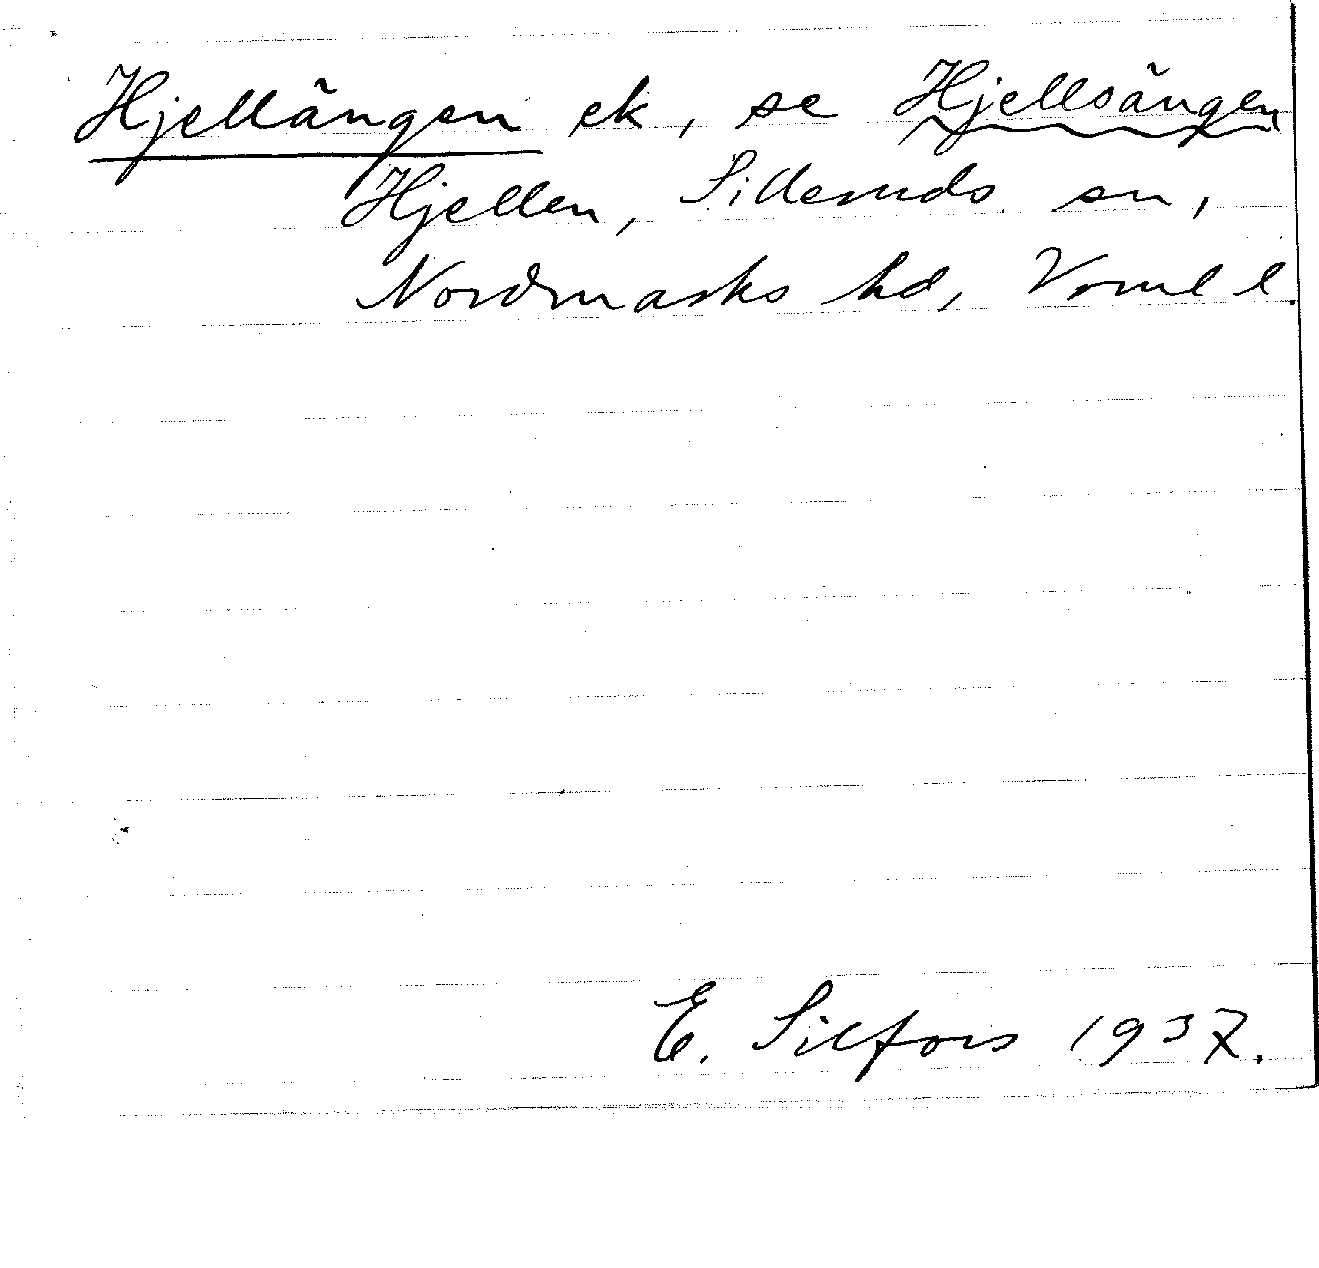 Hjellängen ek, se Hjellsängen
Hjellen, Silleruds sn,
Nordmarks hd, Vrml l.
E. Silfors 1937.